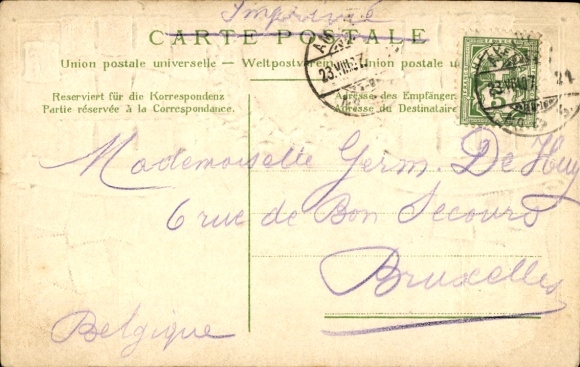 Imprimé
CARTE POSTALE
Union postale universelle — Weltpostverein — Union postale u
Reserviert für die Korrespondenz
Partie réservée à la Correspondance.
Adresse des Empfängers.
Adresse du Destinataire
23.VIII.07.
5
Mademoiselle Germ. De Huy
6 rue de Bon Secours
Bruxelles
Belgique